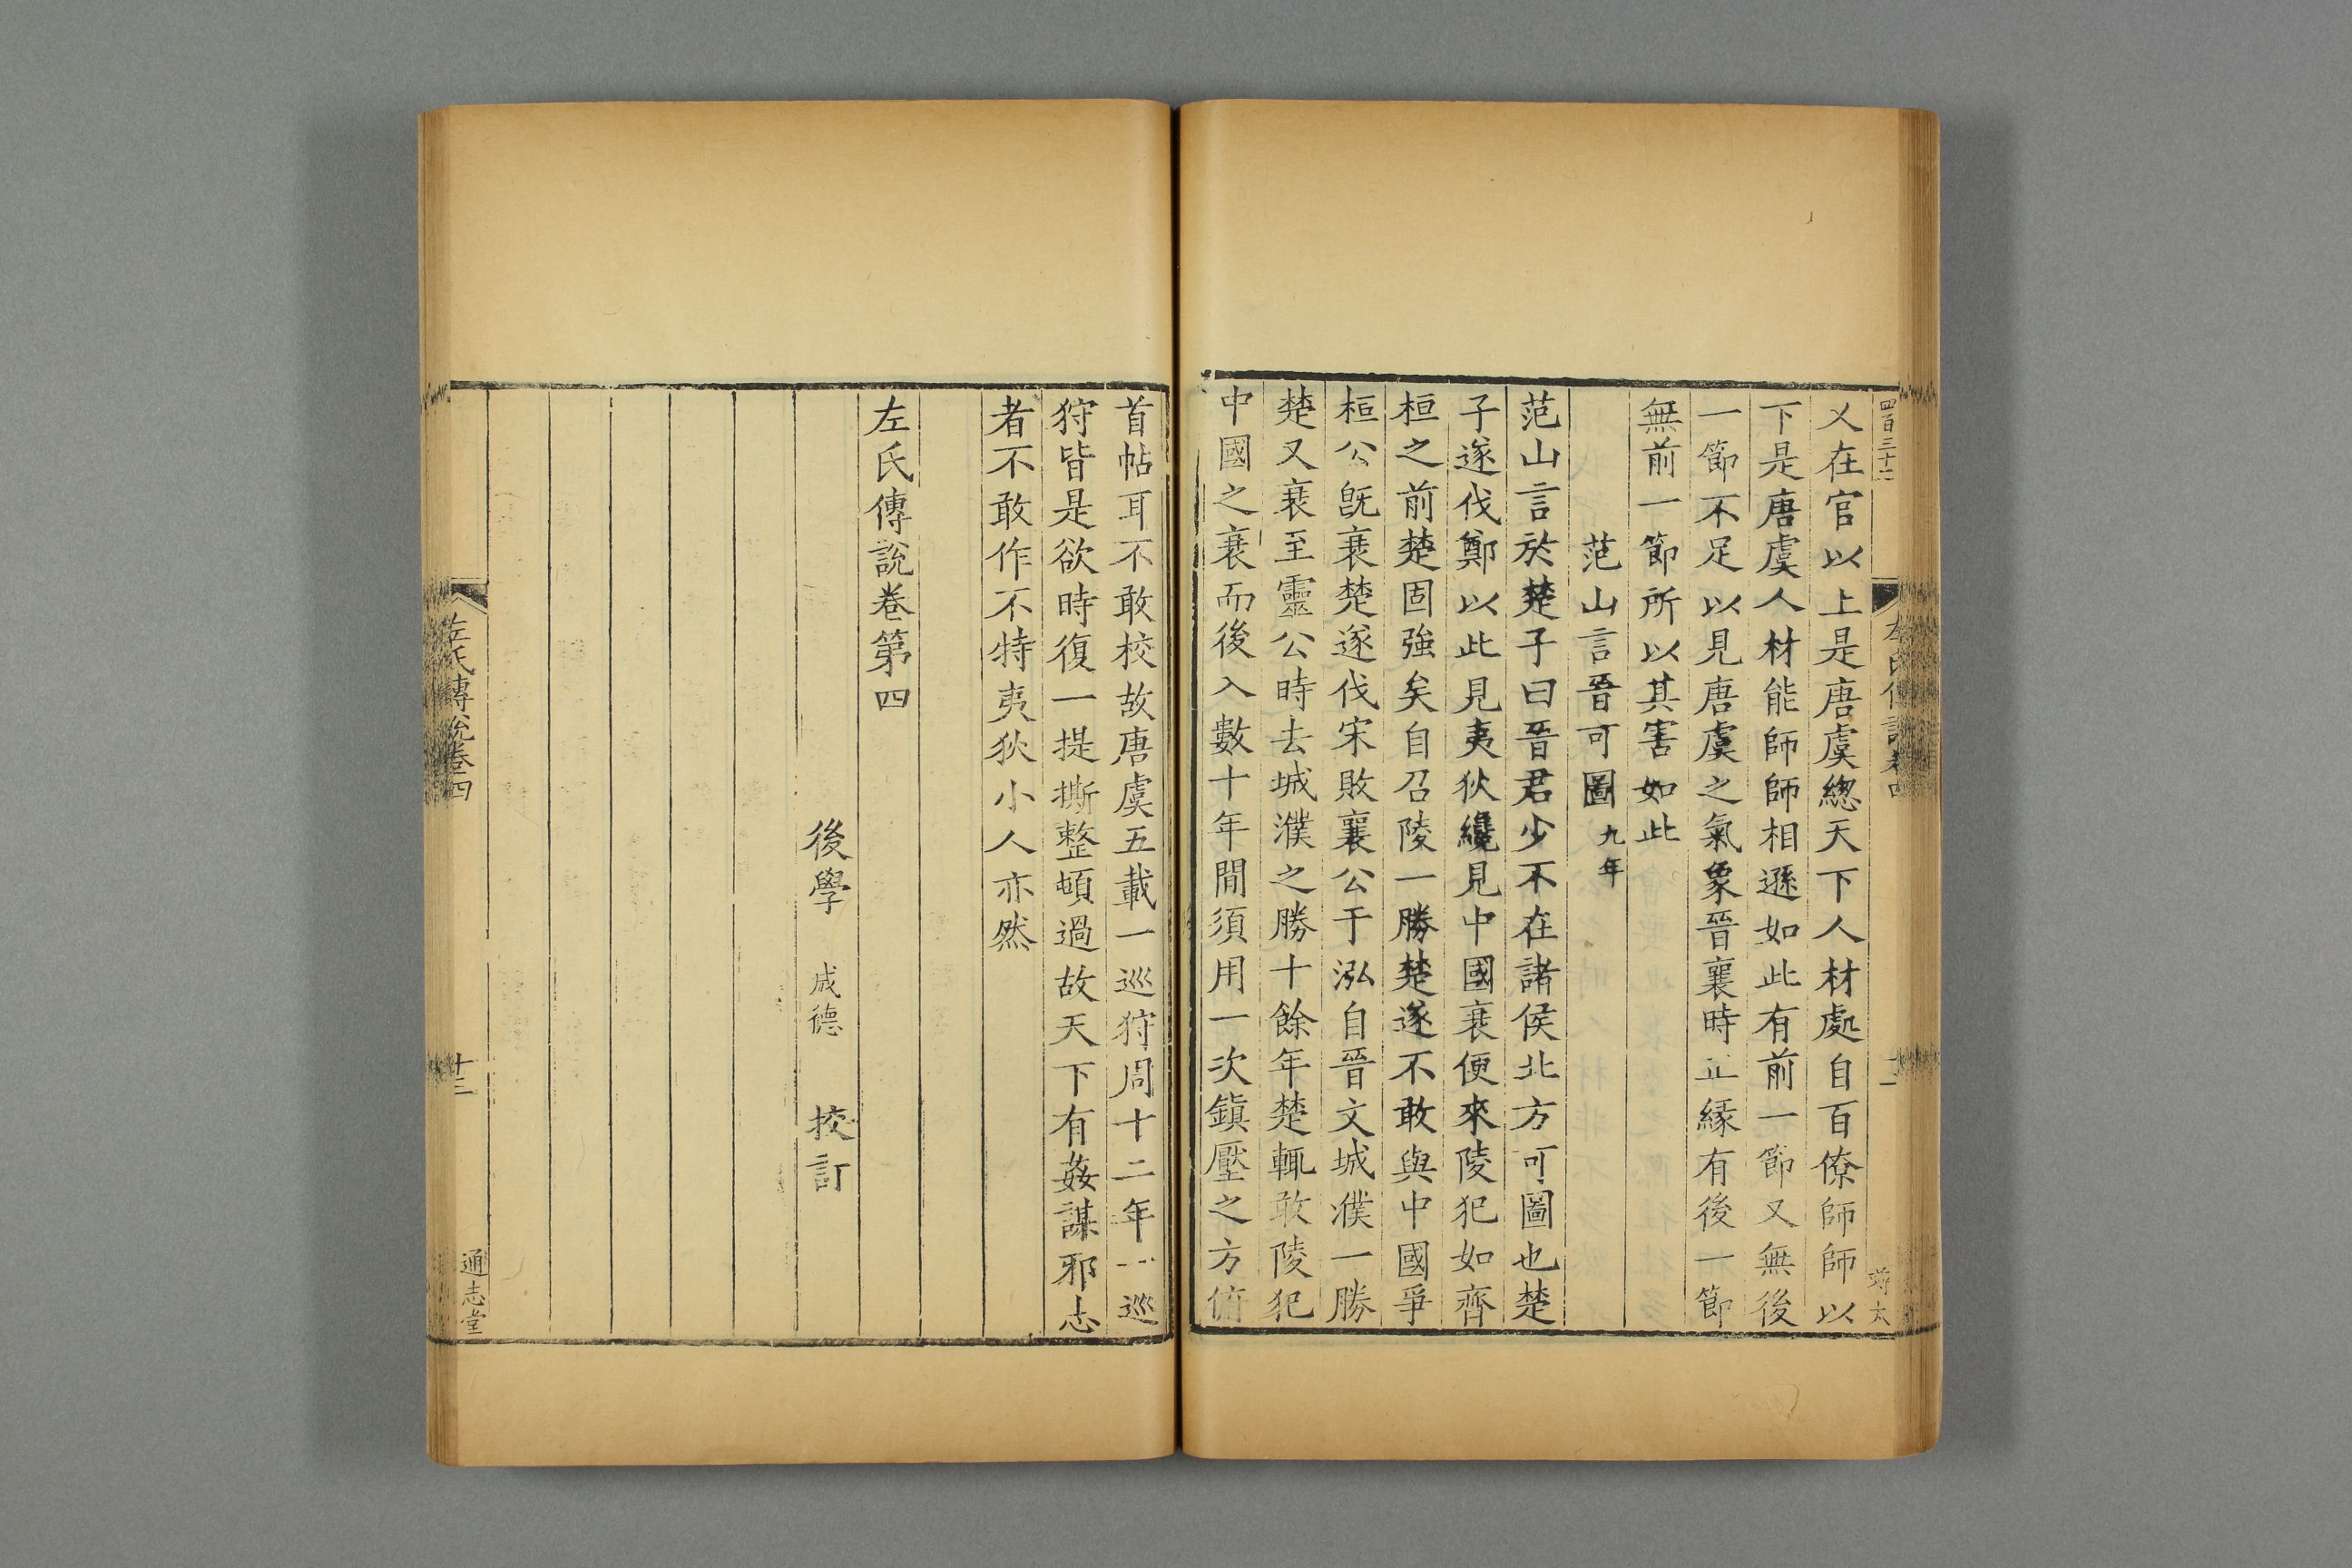 四百三十二
乂在官以上是唐虞緫天下人材處自百僚師師以
下是唐虞人材能師師相遜如此有前一節又無後
一節不足以見唐虞之氣象晉襄時正緣有後一節
無前一節所以其害如此
范山言晉可圖九年
范山言於楚子曰晉君少不在諸侯北方可圖也楚
子遂伐鄭以此見夷狄纔見中國衰便來陵犯如齊
桓之前楚固強矣自召陵一勝楚遂不敢與中國爭
桓公旣衰楚遂伐宋敗襄公于泓自晉文城濮一勝
楚又衰至靈公時去城濮之勝十餘年楚輒敢陵犯
中國之衰而後入數十年間須用一次鎭壓之方俯
首帖耳不敢校故唐虞五載一巡狩周十二年一巡
狩皆是欲時復一提撕整頓過故天下有姦謀邪志
者不敢作不特夷狄小人亦然
左氏傳說卷第四
後學 成德 挍訂
左氏傳說卷四
十三
通志堂